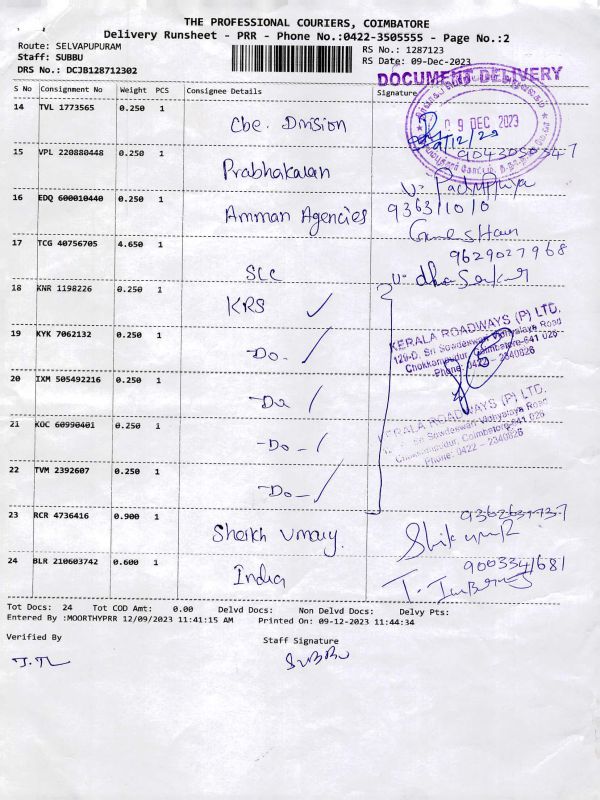 THE PROFESSIONAL COURIERS, COIMBATORE
Delivery Runsheet - PRR - Phone No.:0422-3505555 - Page No.:2
Route: SELVAPUPURAM
Staff: SUBBU
DRS No.: DCJB128712302
RS No.: 1287123
RS Date: 09-Dec-2023
DOCUMENT DELIVERY
S No Consignment No Weight PCS Consignee Details Signature
14 TVL 1773565 0.250 1 Cbe. Division
09 DEC 2023
9/12/23
15 VPL 220880448 0.250 1 Prabhakalan
16 EDQ 600010440 0.250 1 Amman Agencies 936311010
17 TCG 40756705 4.650 1 SLC 9629027968
18 KNR 1198226 0.250 1 KRS
KERALA ROADWAYS (P) LTD.
129-D, Sri Sowdeswari Vidhyalaya Road
Chokkampudur, Coimbatore-641 026
Phone: 0422 - 2340826
19 KYK 7062132 0.250 1 -Do-
20 IXM 505492216 0.250 1 -Do
KERALA ROADWAYS (P) LTD.
129-D, Sri Sowdeswari Vidhyalaya Road
Chokkampudur, Coimbatore-641 026
Phone: 0422 - 2340826
21 KOC 60990401 0.250 1 -Do-
22 TVM 2392607 0.250 1 -Do-
23 RCR 4736416 0.900 1 Sheikh Umary.
24 BLR 210603742 0.600 1 India 9003341681
Tot Docs: 24 Tot COD Amt: 0.00 Delvd Docs: Non Delvd Docs: Delvy Pts:
Entered By :MOORTHYPRR 12/09/2023 11:41:15 AM Printed On: 09-12-2023 11:44:34
Verified By Staff Signature
SUBBU